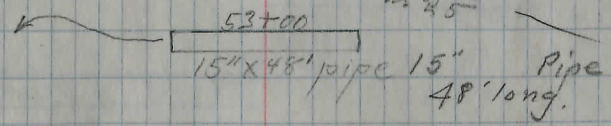 53+00
15"x48' pipe 15" Pipe
48' long.